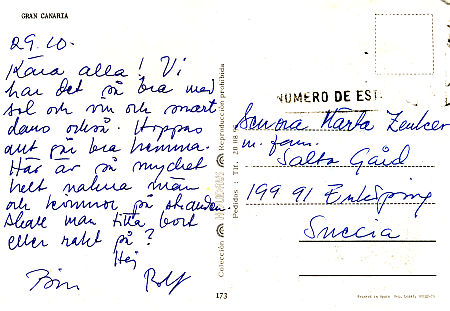 GRAN CANARIA
29.10.
Kära alla! Vi
har det så bra med
sol och vin och snart
dans också. Hoppas
allt går bra hemma.
Här är så mycket
helt nakna män
och kvinnor på stranden
skall man titta bort
eller rakt på?
Hej
Rolf
Colección
Reproducción prohibida
Pedidos : Tn. 20 08 98
173
NUMERO DE EST
Senora Märta Zenker
m. fam.
Salta Gård
199 91 Enköping
Suecia
Printed in Spain